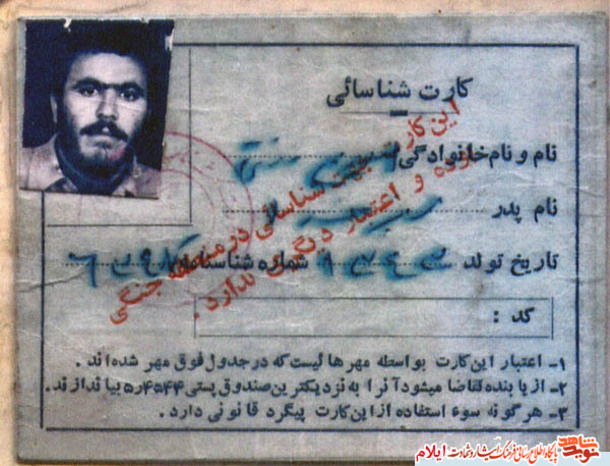 کارت شناسائی
نام و نام خانوادگی:
نام پدر
تاریخ تولد ۱۳۴۳ شماره شناسنامه
کد :
این کارت جهت شناسائی در منطقه جنگی
بوده و اعتبار دیگری ندارد.
۱- اعتبار این کارت بواسطه مهرهائیست که در جدول فوق مهر شده اند .
۲- از یابنده تقاضا میشود آنرا به نزدیکترین صندوق پستی بیاندازند.
۳- هرگونه سوء استفاده از این کارت پیگرد قانونی دارد .
نوید شاهد
پایگاه اطلاع رسانی فرهنگ ایثار و شهادت ایلام